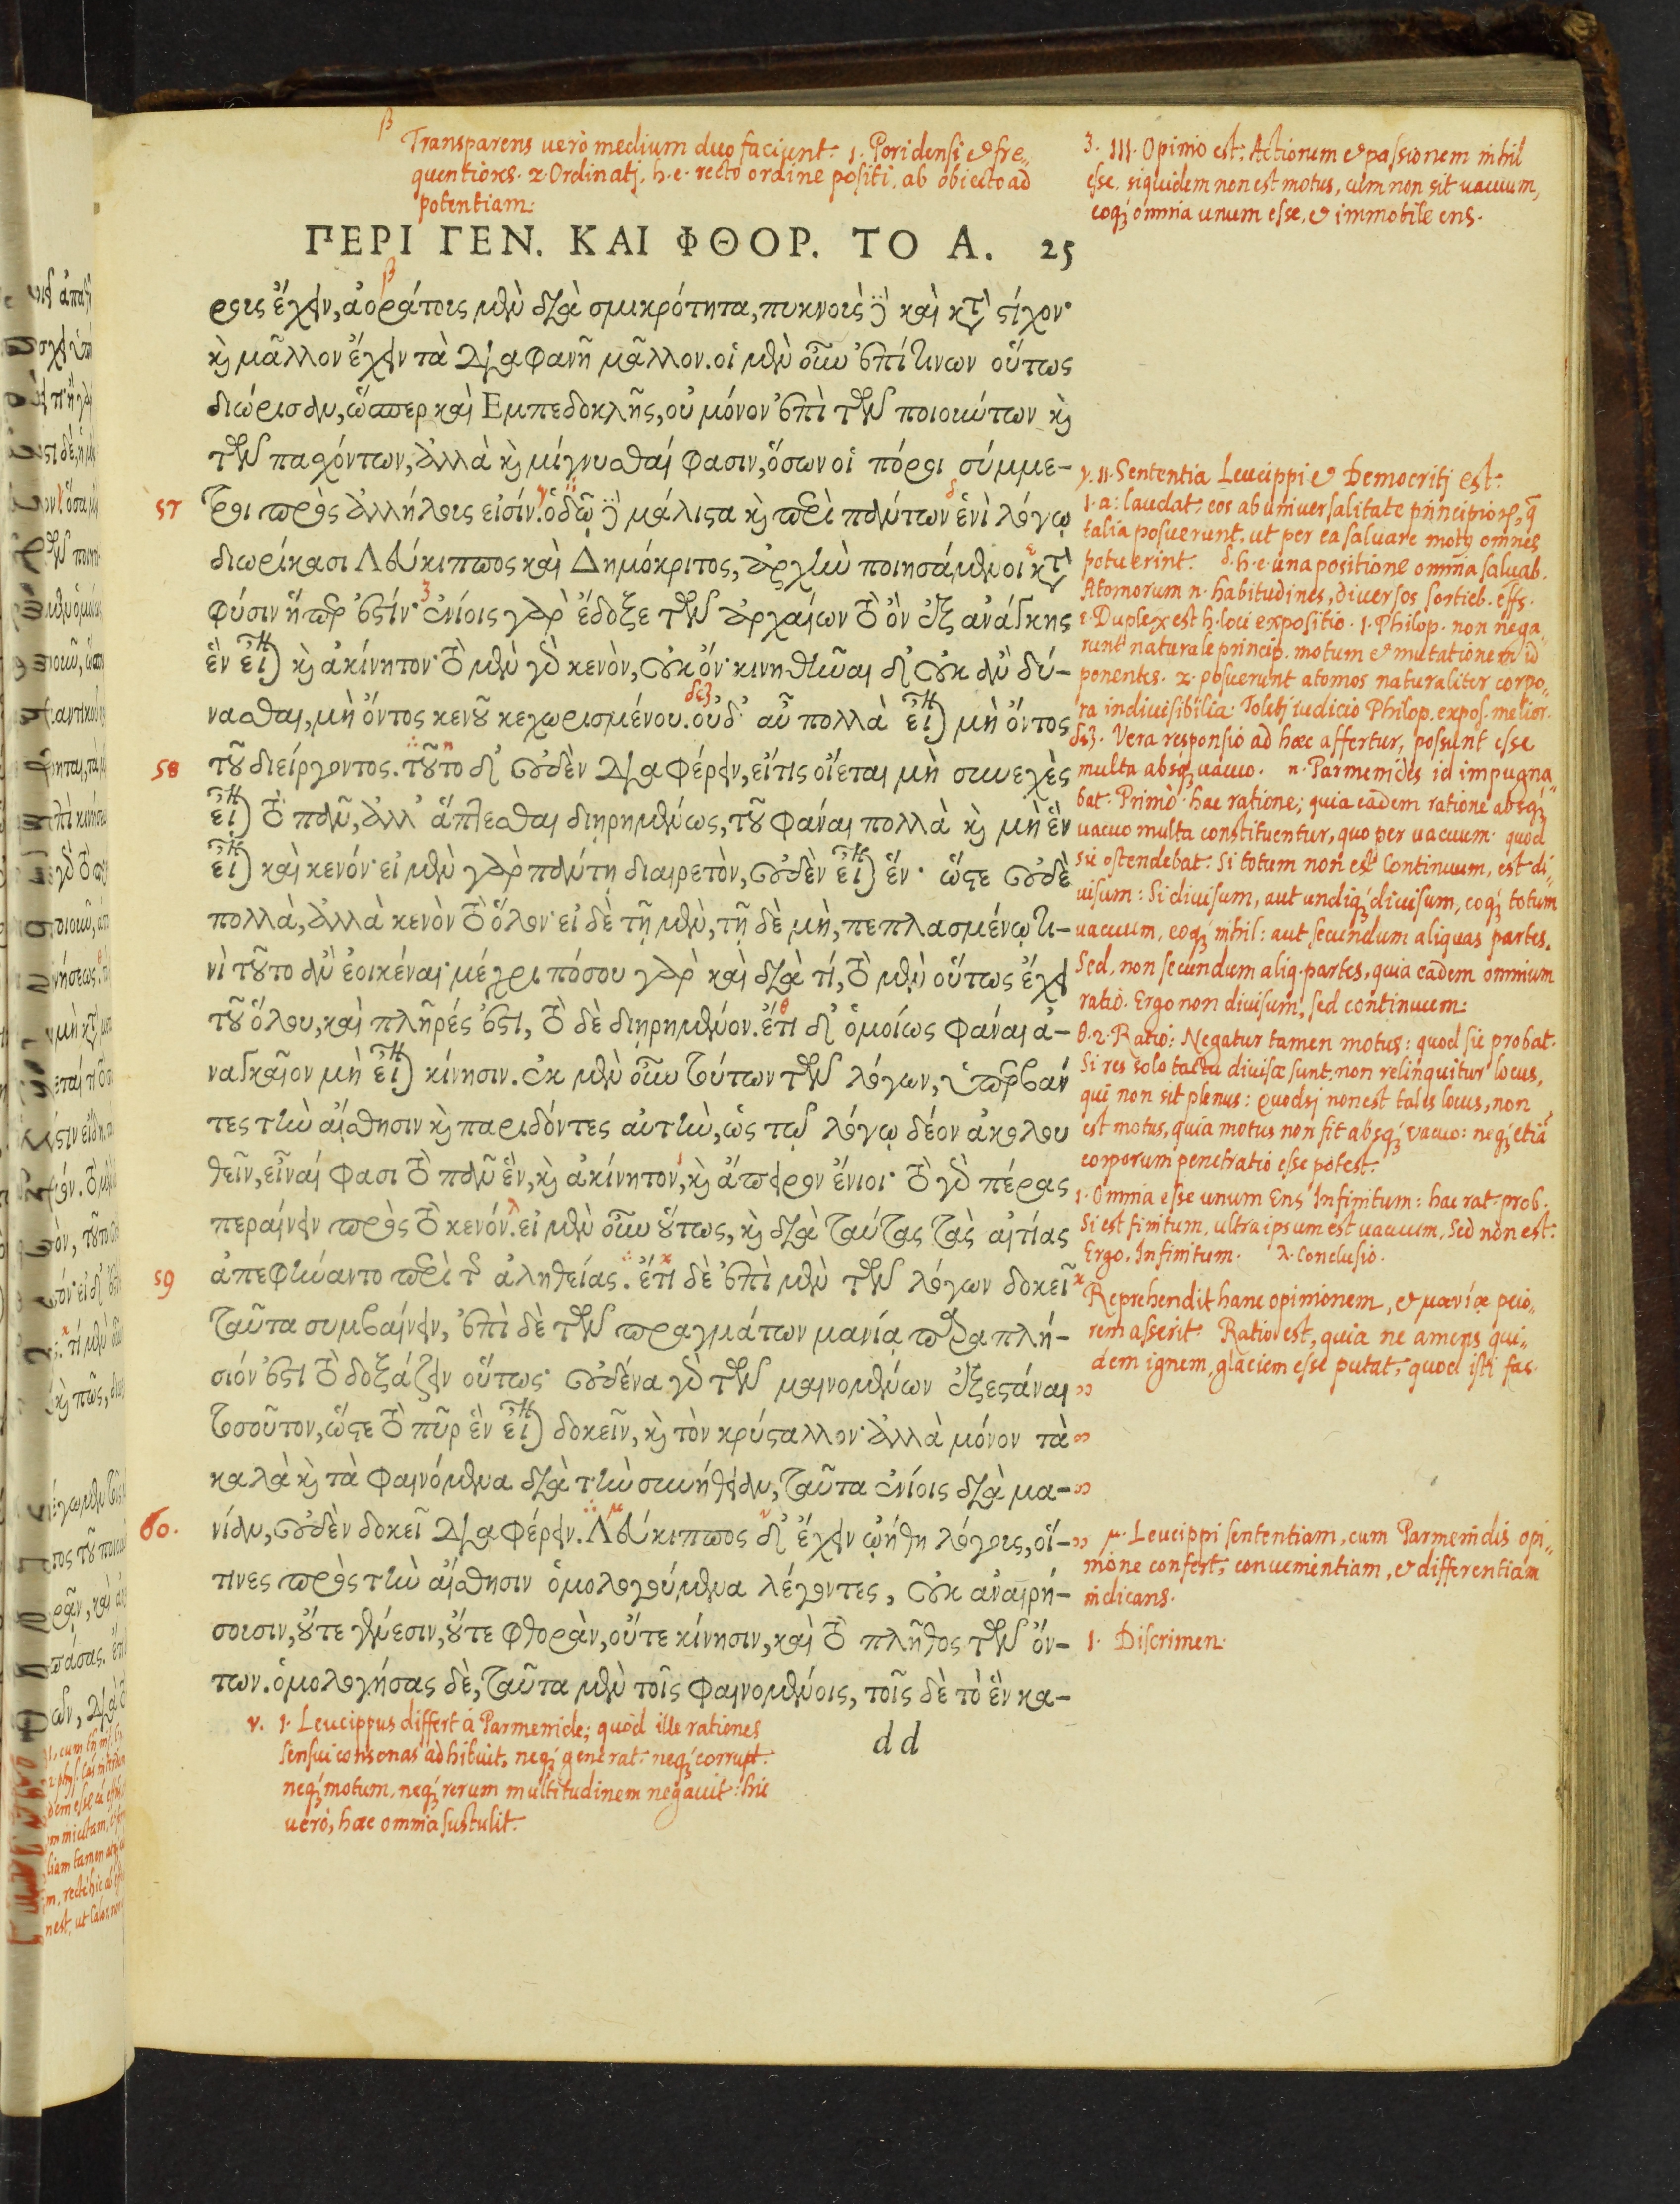 β Transparens uerò medium duo faciunt: 1. Pori densi & fre„
quentiores. 2. Ordinatj, h. e. recto ordine positi, ab obiecto ad
potentiam:
ΠΕΡΙ ΓΕΝ. ΚΑΙ ΦΘΟΡ. ΤΟ Α. 25
ρους ἔχειν, ἀοράτους μὲν διὰ σμικρότητα, πυκνοὺς δὲ καὶ κατὰ στίχον·
καὶ μᾶλλον ἔχειν τὰ διαφανῆ μᾶλλον. οἱ μὲν οὖν ἐπί τινων οὕτως
διώρισαν, ὥσπερ καὶ Εμπεδοκλῆς, οὐ μόνον ἐπὶ τῶν ποιούντων καὶ
τῶν παχόντων, ἀλλὰ καὶ μίγνυσθαί φασιν, ὅσων οἱ πόροι σύμμε-
57 τροι πρὸς ἀλλήλους εἰσίν. ὁδῷ δὲ μάλιστα καὶ περὶ πάντων ἑνὶ λόγῳ
διωρίκασι Λεύκιππος καὶ Δημόκριτος, ἀρχὴν ποιησάμενοι κατὰ
φύσιν ἥπερ ἐστίν· ἐνίοις γὰρ ἔδοξε τῶν ἀρχαίων τὸ ὂν ἐξ ἀνάγκης
ἓν εἶναι καὶ ἀκίνητον· τὸ μὲν γὰρ κενὸν, οὐκ ὄν· κινηθῆναι δ' οὐκ ἂν δύ-
νασθαι, μὴ ὄντος κενοῦ κεχωρισμένου. οὐδ' αὖ πολλὰ εἶναι μὴ ὄντος
58 τοῦ διείργοντος. τοῦτο δ' οὐδὲν διαφέρειν, εἴτις οἴεται μὴ συνεχὲς
εἶναι τὸ πᾶν, ἀλλ' ἅπτεσθαι διῃρημένως, τοῦ φάναι πολλὰ καὶ μὴ ἓν
εἶναι καὶ κενόν· εἰ μὲν γὰρ πάντῃ διαιρετὸν, οὐδὲν εἶναι ἕν· ὥστε οὐδὲ
πολλὰ, ἀλλὰ κενὸν τὸ ὅλον· εἰ δὲ τῇ μὲν, τῇ δὲ μὴ, πεπλασμένῳ τι-
νὶ τοῦτο ἂν ἐοικέναι· μέχρι πόσου γὰρ καὶ διὰ τί, τὸ μὲν οὕτως ἔχει
τοῦ ὅλου, καὶ πλῆρές ἐστι, τὸ δὲ διῃρημένον. ἔτι δ' ὁμοίως φάναι ἀ-
ναγκαῖον μὴ εἶναι κίνησιν. ἐκ μὲν οὖν τούτων τῶν λόγων, ὑπερβάν
τες τὴν αἴσθησιν καὶ παριδόντες αὐτὴν, ὡς τῷ λόγῳ δέον ἀκολου
θεῖν, εἶναί φασι τὸ πᾶν ἓν, καὶ ἀκίνητον, καὶ ἄπειρον ἔνιοι· τὸ γὰρ πέρας
περαίνειν πρὸς τὸ κενόν. εἰ μὲν οὖν οὕτως, καὶ διὰ ταύτας τὰς αἰτίας
59 ἀπεφήναντο περὶ τῆς ἀληθείας. ἔτι δὲ ἐπὶ μὲν τῶν λόγων δοκεῖ
ταῦτα συμβαίνειν, ἐπὶ δὲ τῶν πραγμάτων μανίᾳ παραπλή-
σιόν ἐστι τὸ δοξάζειν οὕτως· οὐδένα γὰρ τῶν μαινομένων ἐξεστάναι
τοσοῦτον, ὥστε τὸ πῦρ ἓν εἶναι δοκεῖν, καὶ τὸν κρύσταλλον· ἀλλὰ μόνον τὰ
καλὰ καὶ τὰ φαινόμενα διὰ τὴν συνήθειαν, ταῦτα ἐνίοις διὰ μα-
60. νίαν, οὐδὲν δοκεῖ διαφέρειν. Λεύκιππος δ' ἔχειν ᾠήθη λόγους, οἵ-
τινες πρὸς τὴν αἴσθησιν ὁμολογούμενα λέγοντες, οὐκ ἀναιρή-
σουσιν, οὔτε γένεσιν, οὔτε φθορὰν, οὔτε κίνησιν, καὶ τὸ πλῆθος τῶν ὄν-
των. ὁμολογήσας δὲ, ταῦτα μὲν τοῖς φαινομένοις, τοῖς δὲ τὸ ἓν κα-
d d
ν. 1. Leucippus differt à Parmenide; quòd ille rationes
sensui consonas adhibuit, neq; generat. neq; corrupt.
neq; motum, neq; rerum multitudinem negauit: hic
uerò, haec omnia sustulit.
3. III. Opinio est: Actionem & passionem nihil
esse, siquidem non est motus, cùm non sit uacuum,
eoq; omnia unum esse, & immobile ens.
γ. II. Sententia Leucippi & Democritj est:
1. a: laudat eos ab uniuersalitate principior., q
talia posuerunt, ut per ea saluare motq omnes
potuerint. δ. h. e. una positione omnia saluab.
Atomorum n. habitudines, diuersos sortieb. effs.
ε. Duplex est h. loci expositio. 1. Philop. non nega„
runt naturale princip. motum & mutationem id
ponentes. 2. posuerunt atomos naturaliter corpo„
ra indiuisibilia: Toletj iudicio Philop. expos. melior.
δεζ. Vera responsio ad haec affertur, possunt esse
multa absq; uacuo. η. Parmenides id impugna„
bat. Primò. hac ratione; quia eadem ratione absq;
uacuo multa constituentur, quo per uacuum. quod
sic ostendebat: Si totum non est continuum, est di„
uisum: Si diuisum, aut undiq; diuisum, eoq; totum
uacuum, eoq; nihil: aut secundum aliquas partes.
Sed, non secundum aliq. partes, quia eadem omnium
ratio. Ergo non diuisum, sed continuum:
θ. 2. Ratio: Negatur tamen motus: quod sic probat.
Si res solo tactu diuisae sunt, non relinquitur locus,
qui non sit plenus: quodsj non est talis locus, non
est motus, quia motus non fit absq; vacuo: neq; etiā
corporum penetratio esse potest.
ι. Omnia esse unum Ens Infinitum: hac rat. prob.
Si est finitum, ultra ipsum est uacuum, Sed non est:
Ergo, Infinitum. λ. Conclusio.
κ Reprehendit hanc opinionem, & μανίᾳ peio„
rem asserit. Ratio est, quia ne amens qui„
dem ignem, glaciem esse putat, quod isti fac.
μ. Leucippi sententiam, cum Parmenidis opi„
nione confert, conuenientiam, & differentiam
indicans.
1. Discrimen.